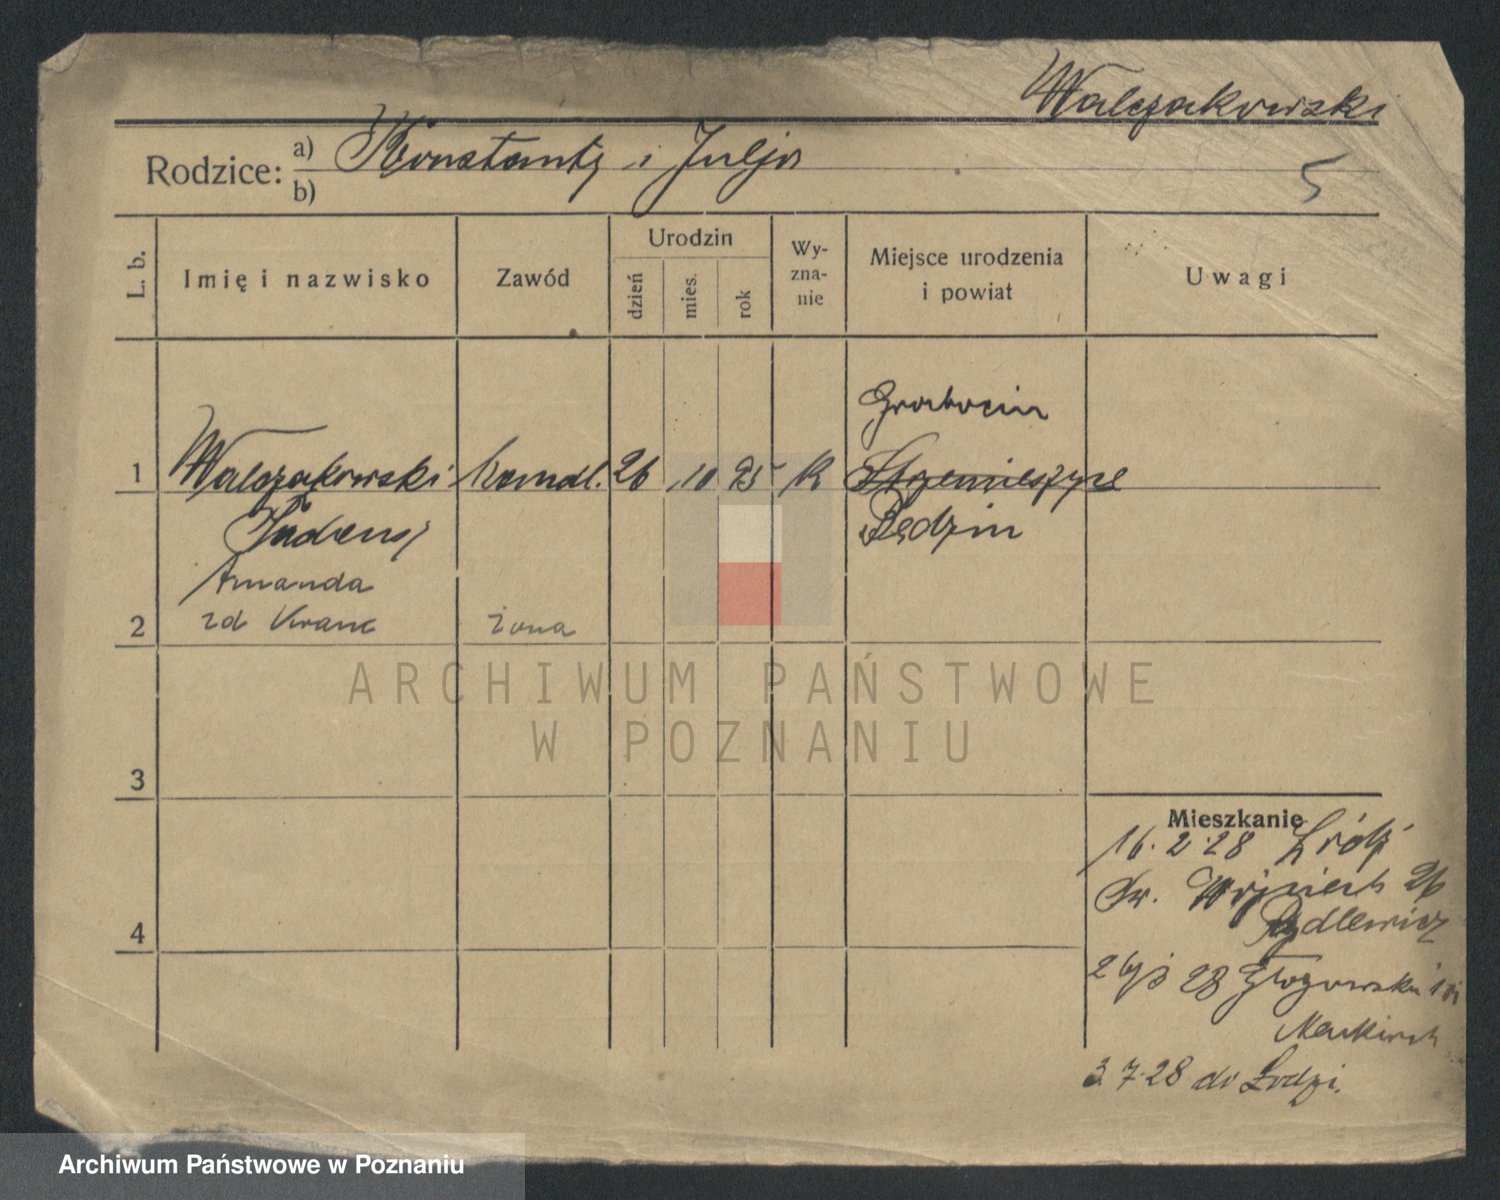 Walczakowski
Rodzice: a) Konstanty i Julja
b)
5
L. b.
Imię i nazwisko
Zawód
Urodzin
dzień
mies.
rok
Wy-
zna-
nie
Miejsce urodzenia
i powiat
Uwagi
Grabocin
1 Walczakowski handl. 26 10 95 K Strzemieszyce
Tadeusz Będzin
Amanda
2 zd Kranc żona
ARCHIWUM PAŃSTWOWE
W POZNANIU
3
Mieszkanie
16.2.28 Łódź
Św. Wojciech 26
4
28
3.7.28 do Łodzi.
Archiwum Państwowe w Poznaniu